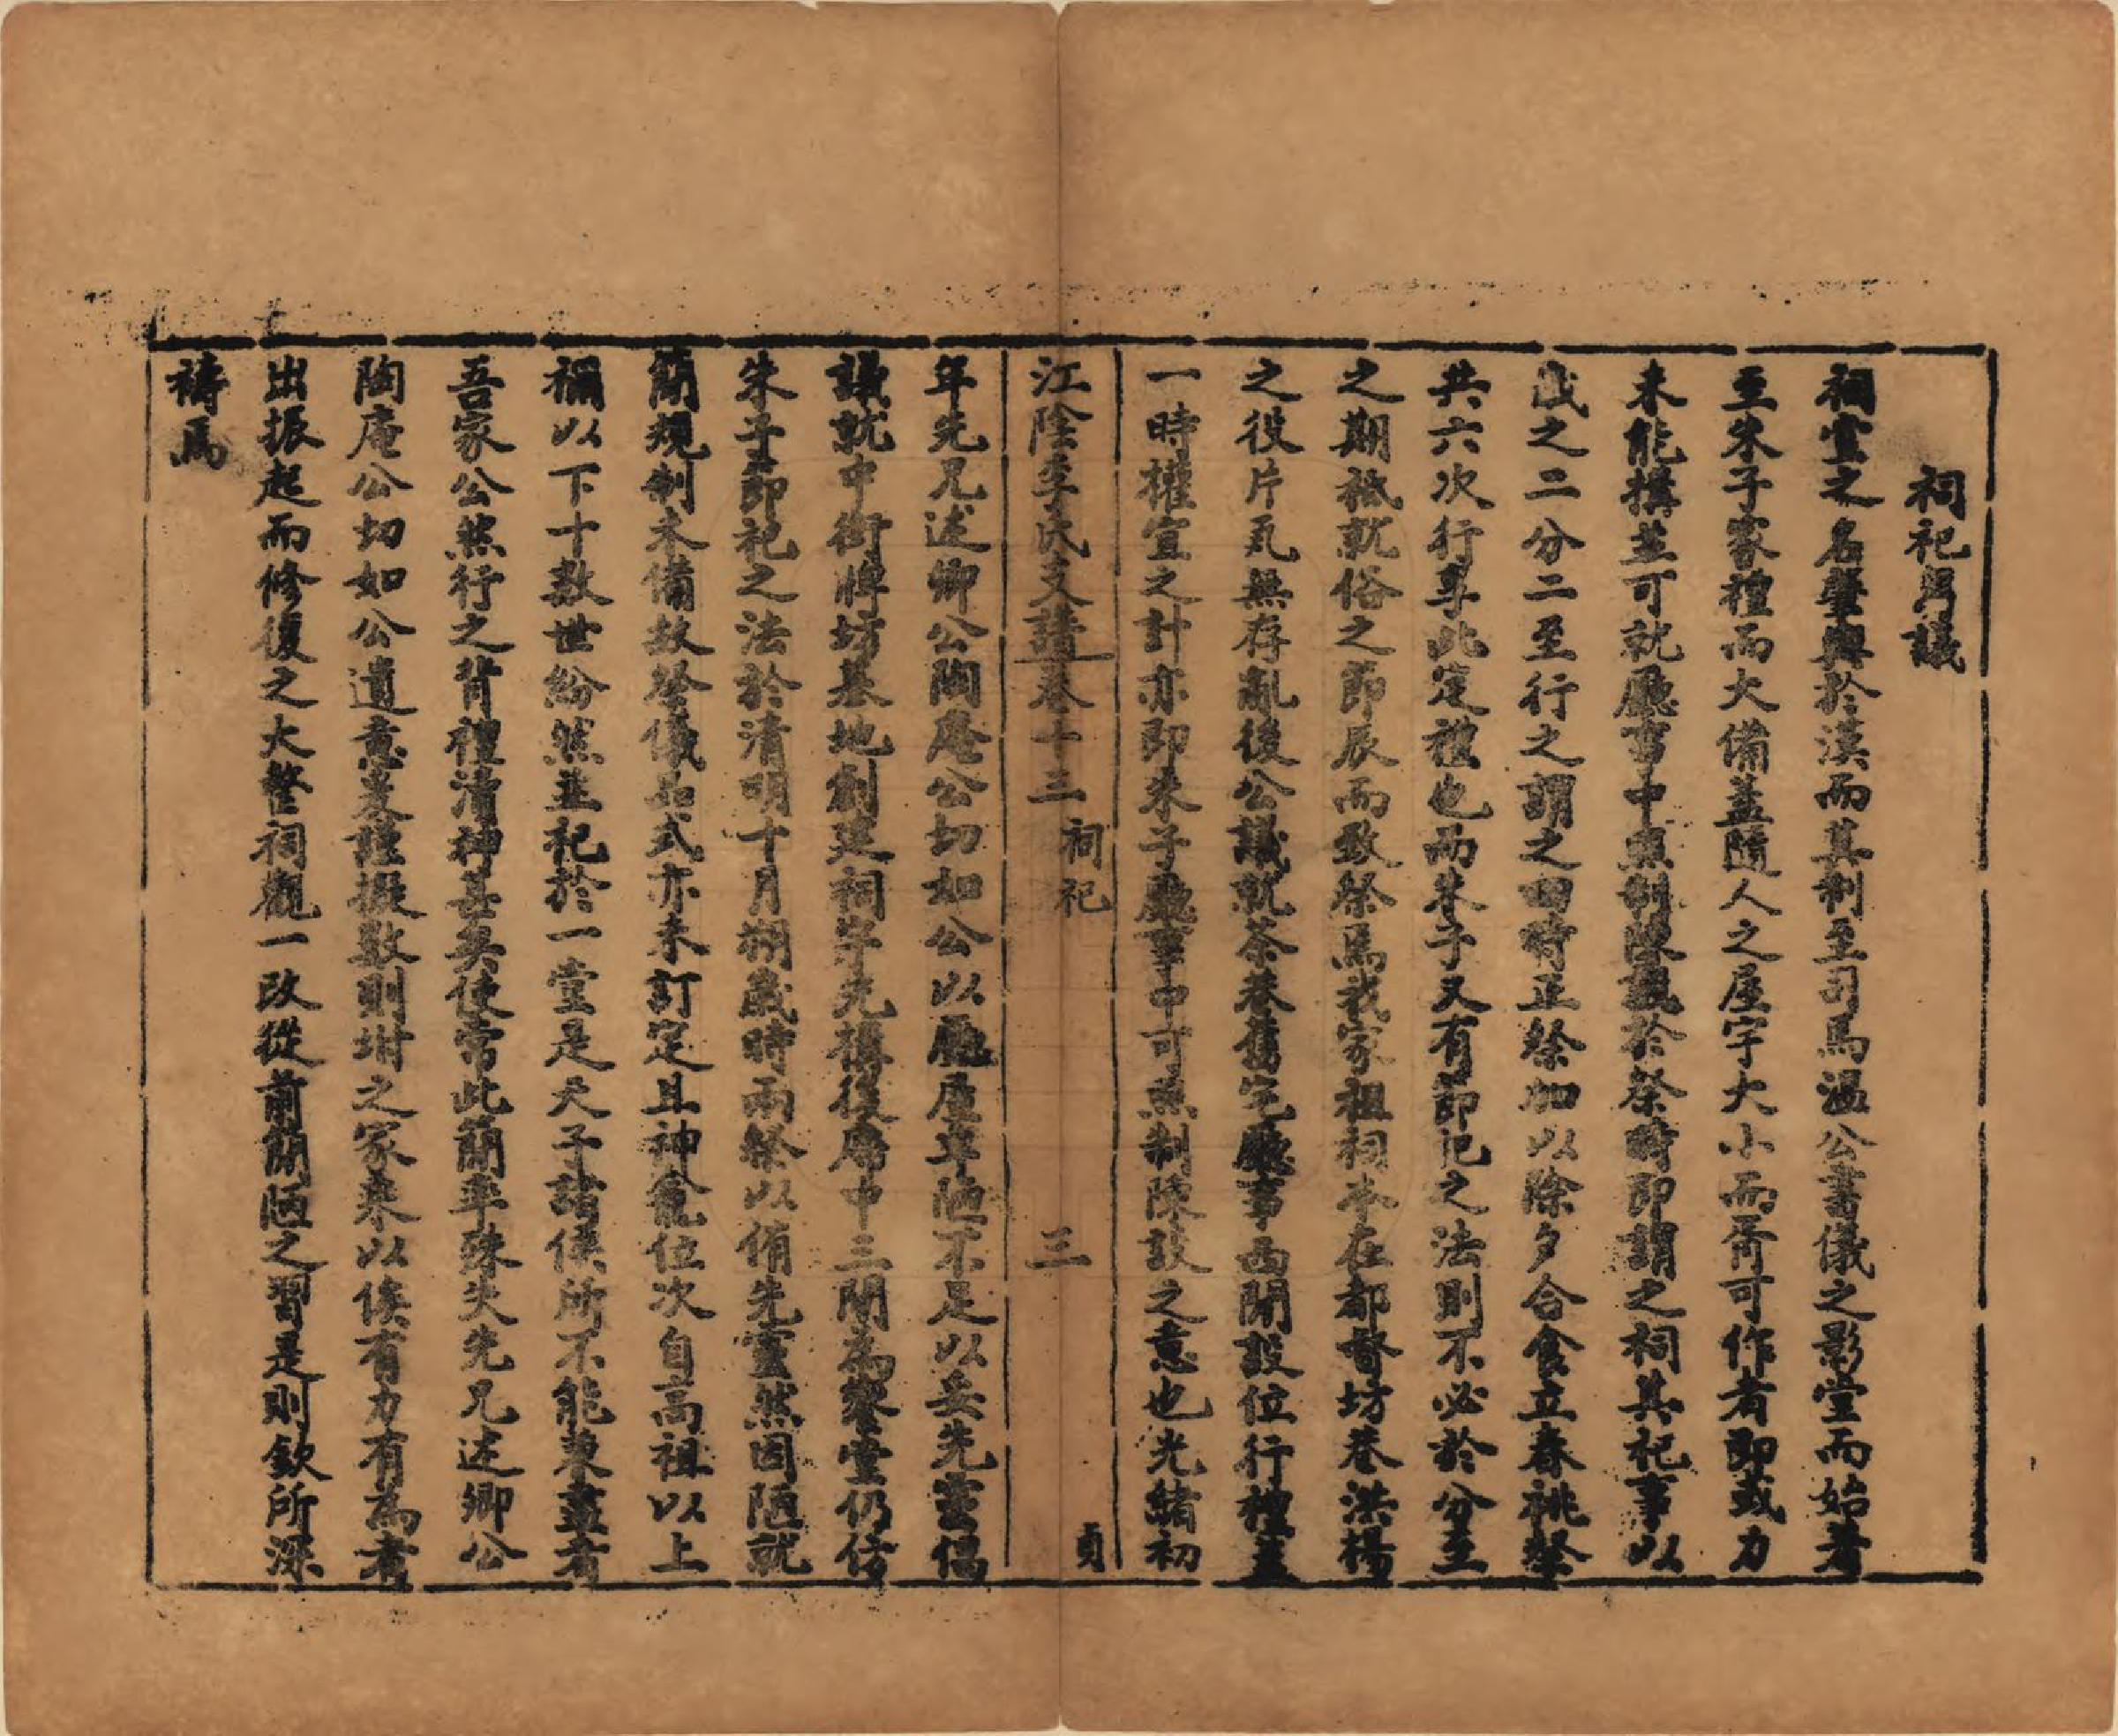 祠祀芻議
祠堂之名肇興於漢而其制至司馬温公書儀之影堂而始著
至朱子家禮而大備蓋隨人之屋宇大小而斋可作者即或力
未能搆並可就廳事中照制陳設於祭時即謂之祠其祀事以
歲之二分二至行之謂之四時正祭加以除夕合食立春祧祭
共六次行事此定禮也而朱子又有節祀之法則不必於分至
之期祗就俗之節辰而致祭焉我家祖祠本在都督坊巷洪楊
之役片瓦無存亂後公議就茶巷舊宅廳事西間設位行禮蓋
一時權宜之計亦即朱子廳事中可照制陳設之意也光緒初
江陰李氏支譜卷十三 祠祀 三 貞
年先兄述卿公陶庵公切如公以廳屋卑陋不足以妥先靈倡
議就中街牌坊基地創建祠宇先搆後廳中三間為寢堂仍仿
朱子節祀之法於清明十月朔歲時兩祭以侑先靈然因陋就
簡規制未備故祭儀品式亦未訂定且神龕位次自高祖以上
禰以下十數世紛然並祀於一堂是天子諸侯所不能兼盡者
吾家公然行之背禮瀆神甚矣使常此簡率殊失先兄述卿公
陶庵公切如公遺意爰謹擬數則坿之家乘以俟有力有為者
出振起而修復之大整祠觀一改從前簡陋之習是則欽所深
禱焉